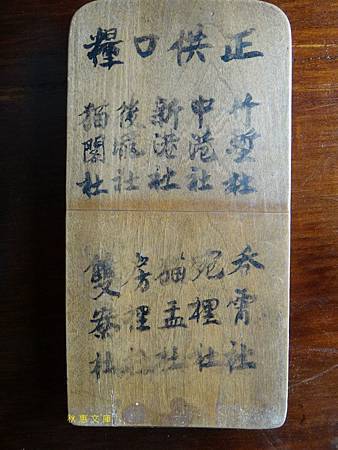 正供口糧
竹塹社
中港社
新港社
後壠社
貓閣社
吞霄社
宛裡社
貓盂社
房裡社
雙寮社
秋惠文庫